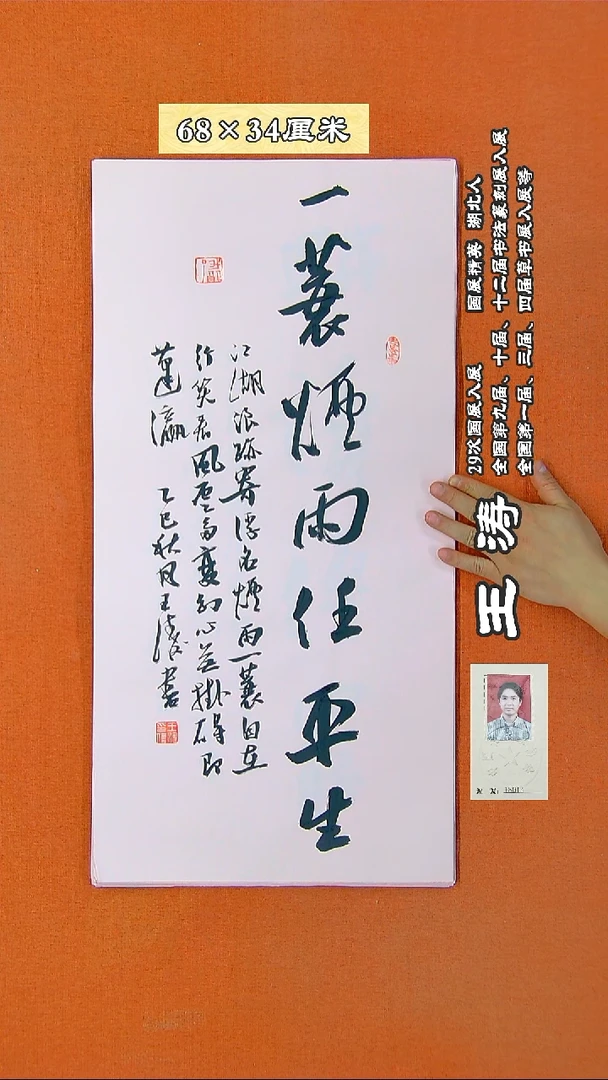 68×34厘米
一蓑煙雨任平生
江湖浪跡寄浮名煙雨一蓑自在
行笑看風雲多變幻心無掛礙即
蓬瀛 乙巳秋月王濤書
29次国展入展 国展精英 湖北人
全国第九届、十届、十二届书法篆刻展入展
全国第一届、三届、四届草书展入展等
王涛